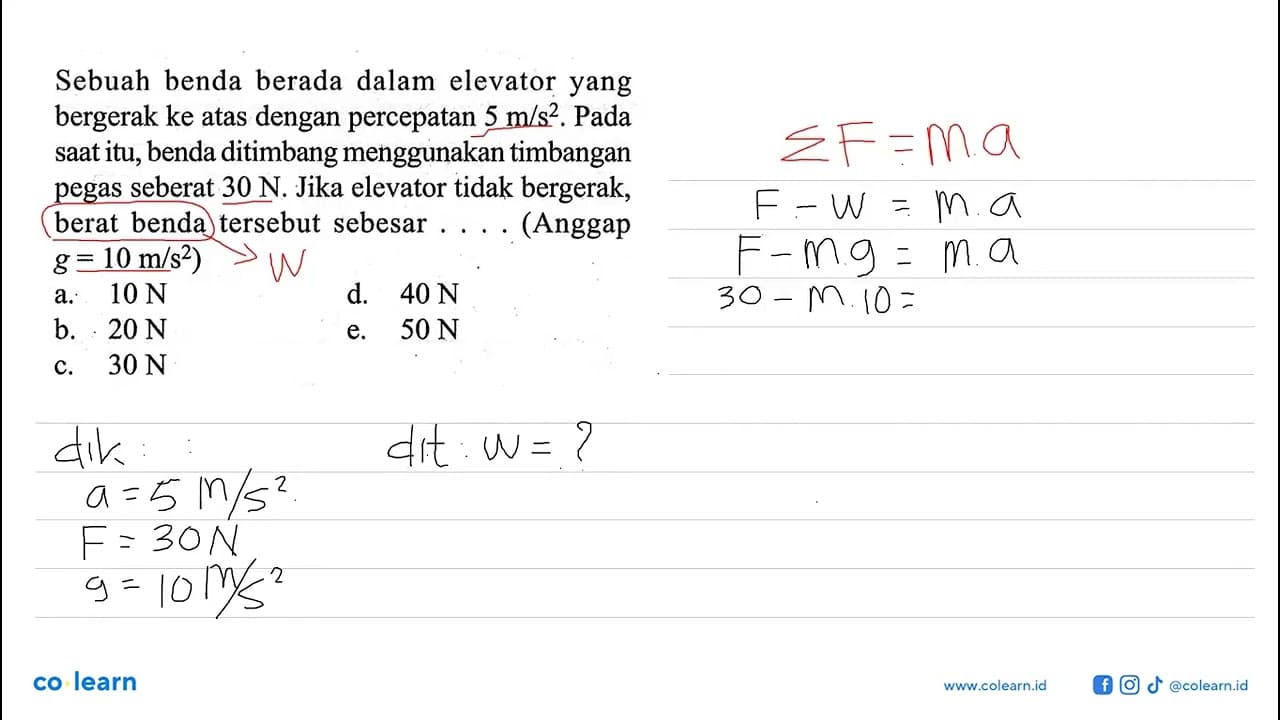 Sebuah benda berada dalam elevator yang
bergerak ke atas dengan percepatan 5 m/s². Pada
saat itu, benda ditimbang menggunakan timbangan
pegas seberat 30 N. Jika elevator tidak bergerak,
berat benda tersebut sebesar . . . . (Anggap
g = 10 m/s²)
W
a. 10 N
b. 20 N
c. 30 N
d. 40 N
e. 50 N
ΣF = m.a
F - W = m.a
F - m.g = m.a
30 - m.10 =
dik :
a = 5 m/s²
F = 30 N
g = 10 m/s²
dit : W = ?
co learn
www.colearn.id
@colearn.id